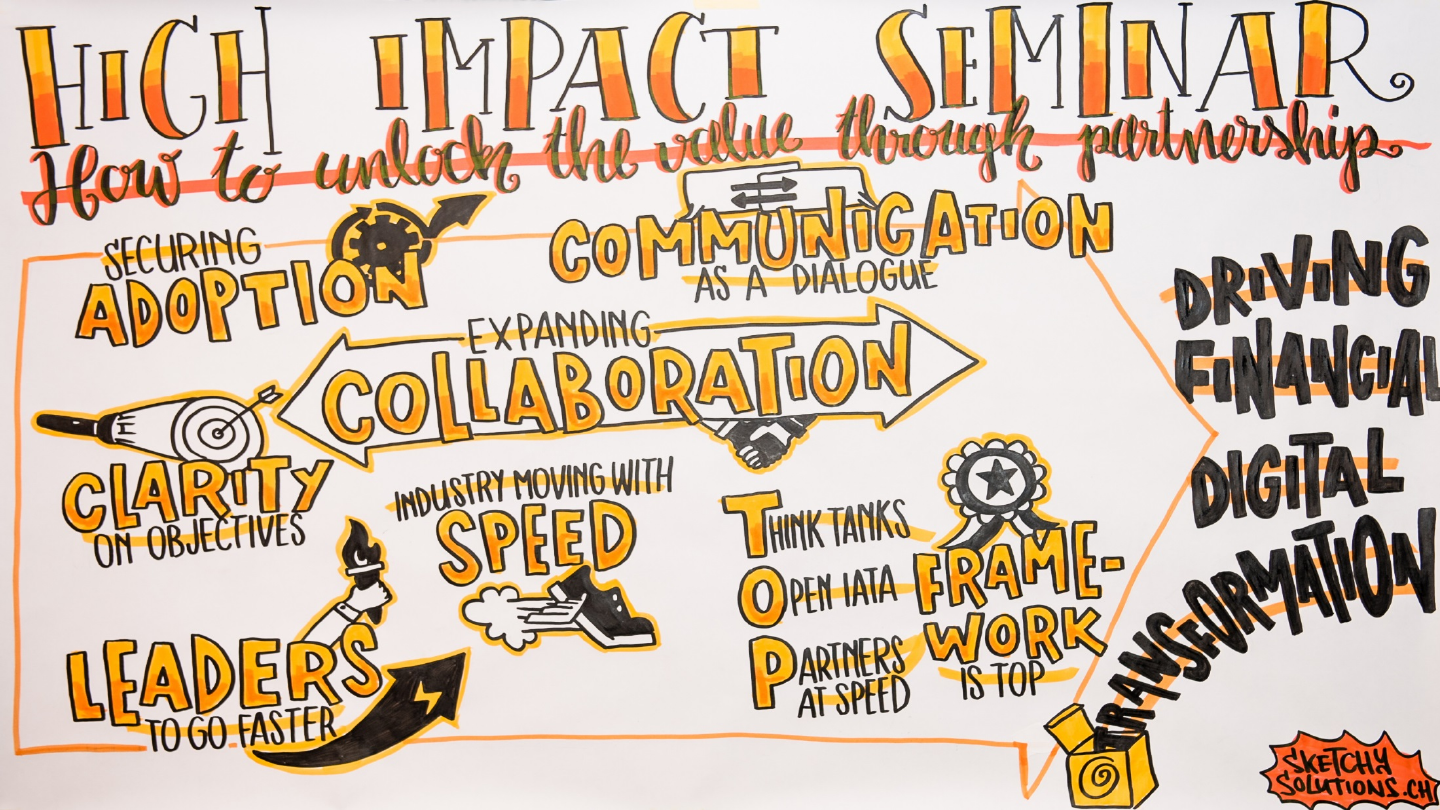 HIGH IMPACT SEMINAR
How to unlock the value through partnership
SECURING
ADOPTION
COMMUNICATION
AS A DIALOGUE
EXPANDING
COLLABORATION
CLARITY
ON OBJECTIVES
INDUSTRY MOVING WITH
SPEED
LEADERS
TO GO FASTER
THINK TANKS
OPEN IATA
PARTNERS
AT SPEED
FRAME-
WORK
IS TOP
DRIVING
FINANCIAL
DIGITAL
TRANSFORMATION
SKETCHY
SOLUTIONS.CH